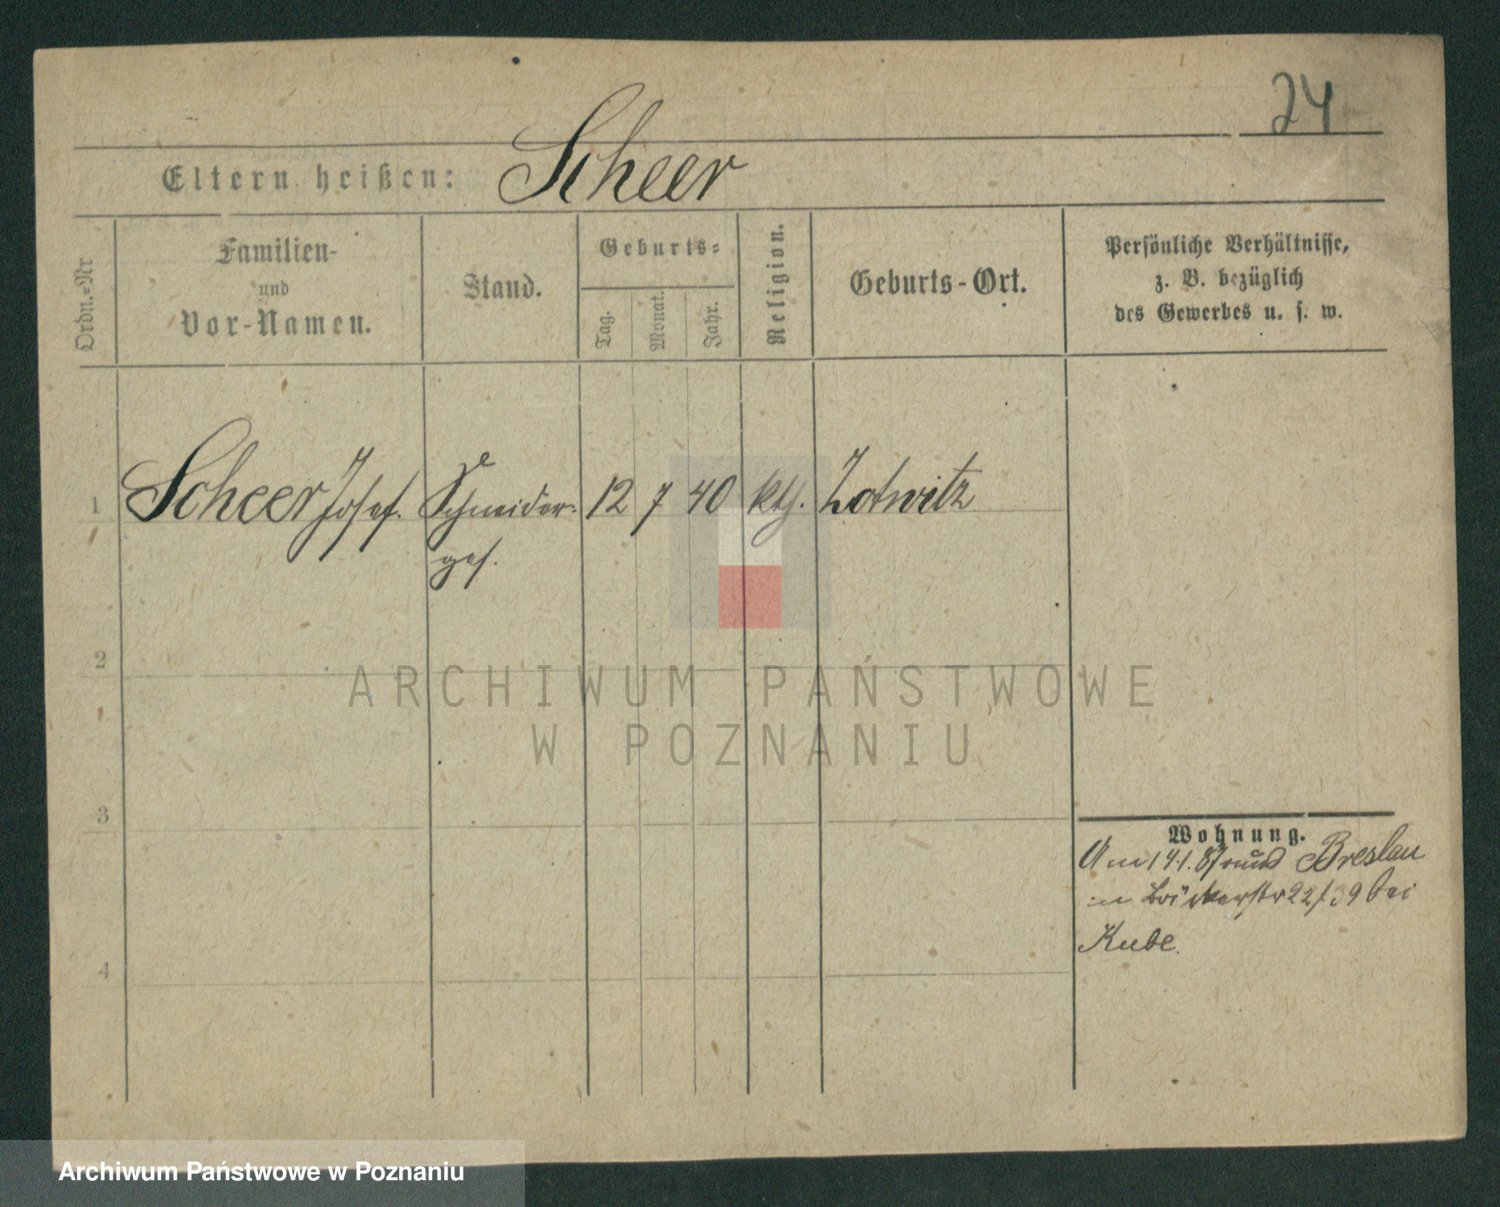 24
Eltern heißen: Scheer
Ordn.-Nr
Familien-
und
Vor-Namen.
Stand.
Geburts-
Tag.
Monat.
Jahr.
Religion.
Geburts-Ort.
Persönliche Verhältnisse,
z. B. bezüglich
des Gewerbes u. s. w.
1 Scheer Josef. Schneider- 12 7 40 kth. Zotwitz
ges.
2
ARCHIWUM PAŃSTWOWE
W POZNANIU
3
4
Wohnung.
Am 14.1.87 Breslau
22/ 9 bei
Kube.
Archiwum Państwowe w Poznaniu